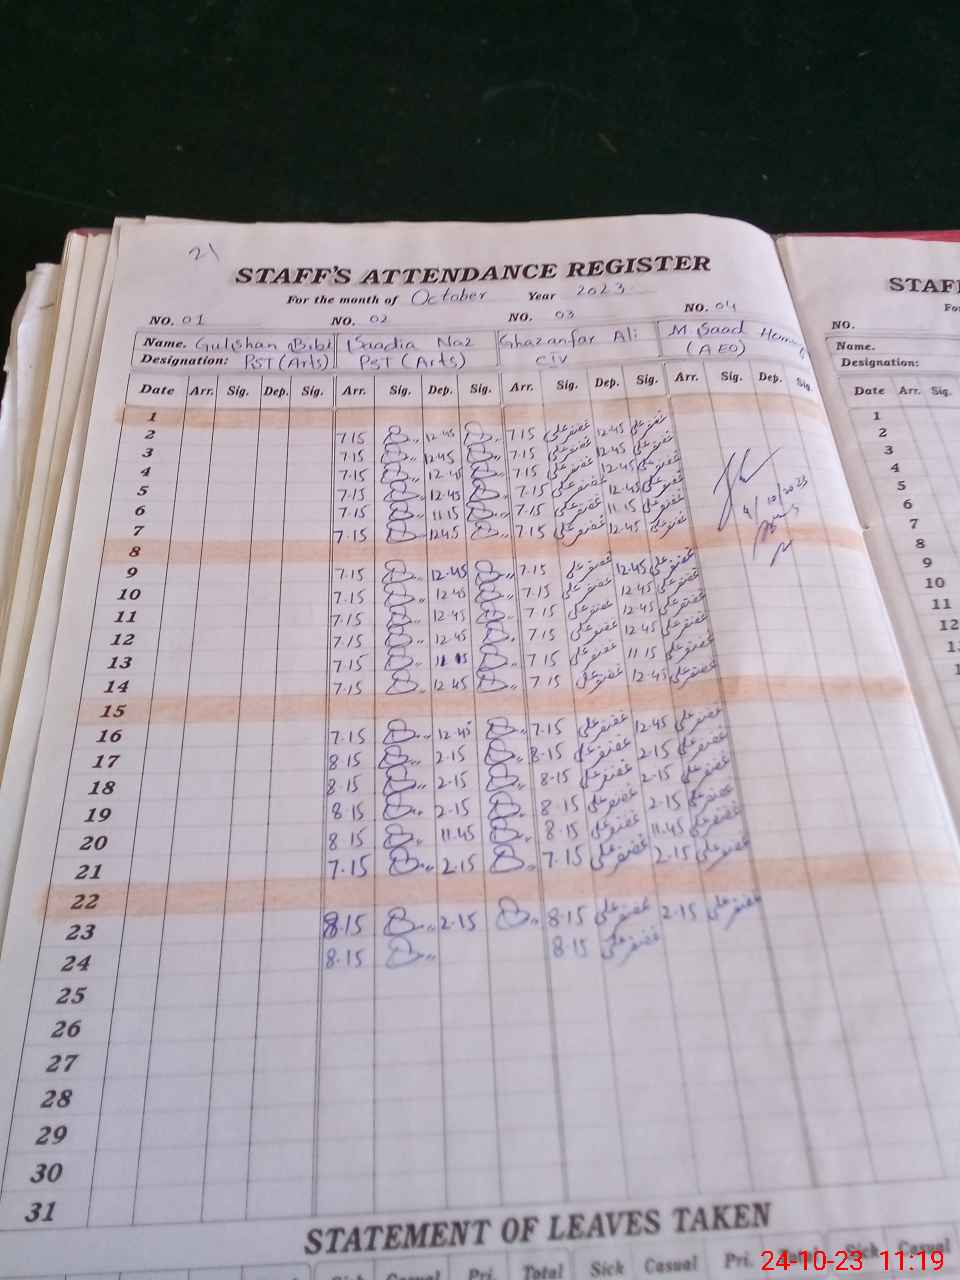 21
STAFF'S ATTENDANCE REGISTER
For the month of October Year 2023
NO. 01 NO. 02 NO. 03 NO. 04
Name. Gulshan Bibi Saadia Naz Ghazanfar Ali M. Saad
Designation: PST (Arts) PST (Arts) C IV (AEO)
Date Arr. Sig. Dep. Sig. Arr. Sig. Dep. Sig. Arr. Sig. Dep. Sig. Arr. Sig. Dep. Sig.
1
2 7.15 12.45 7.15 غضنفر علی 12.45 غضنفر علی
3 7.15 12.45 7.15 غضنفر علی 12.45 غضنفر علی
4 7.15 12.45 7.15 غضنفر علی 12.45 غضنفر علی 4/10/2023
5 7.15 12.45 7.15 غضنفر علی 12.45 غضنفر علی
6 7.15 11.15 7.15 غضنفر علی 11.15 غضنفر علی
7 7.15 12.45 7.15 غضنفر علی 12.45 غضنفر علی
8
9 7.15 12.45 7.15 غضنفر علی 12.45 غضنفر علی
10 7.15 12.45 7.15 غضنفر علی 12.45 غضنفر علی
11 7.15 12.45 7.15 غضنفر علی 12.45 غضنفر علی
12 7.15 12.45 7.15 غضنفر علی 12.45 غضنفر علی
13 7.15 11.15 7.15 غضنفر علی 11.15 غضنفر علی
14 7.15 12.45 7.15 غضنفر علی 12.45 غضنفر علی
15
16 7.15 12.45 7.15 غضنفر علی 12.45 غضنفر علی
17 8.15 2.15 8.15 غضنفر علی 2.15 غضنفر علی
18 8.15 2.15 8.15 غضنفر علی 2.15 غضنفر علی
19 8.15 2.15 8.15 غضنفر علی 2.15 غضنفر علی
20 8.15 11.45 8.15 غضنفر علی 11.45 غضنفر علی
21 7.15 2.15 7.15 غضنفر علی 2.15 غضنفر علی
22
23 8.15 2.15 8.15 غضنفر علی 2.15 غضنفر علی
24 8.15 8.15 غضنفر علی
25
26
27
28
29
30
31
STATEMENT OF LEAVES TAKEN
Sick Casual Pri. Total Sick Casual Pri. Total Sick Casual
STAFF
NO.
Name.
Designation:
Date Arr. Sig.
1
2
3
4
5
6
7
8
9
10
11
12
24-10-23 11:19